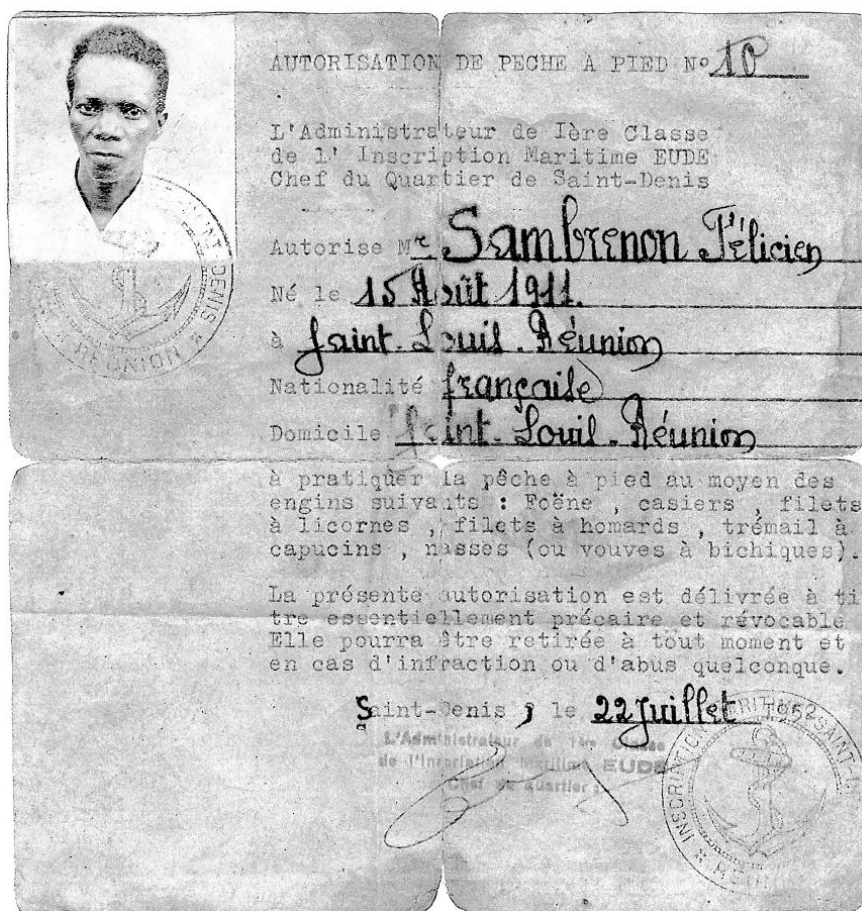 AUTORISATION DE PECHE A PIED N° 10
L'Administrateur de Ière Classe
de l' Inscription Maritime EUDE
Chef du Quartier de Saint-Denis
Autorise Mr Sambrenon Félicien
Né le 15 Août 1911.
à Saint-Louis-Réunion
Nationalité française
Domicile Saint-Louis-Réunion
à pratiquer la pêche à pied au moyen des
engins suivants : Foëne , casiers , filets
à licornes , filets à homards , trémail à
capucins , nasses (ou vouves à bichiques).
La présente autorisation est délivrée à ti
tre essentiellement précaire et révocable
Elle pourra être retirée à tout moment et
en cas d'infraction ou d'abus quelconque.
Saint-Denis , le 22 Juillet 1952
L'Administrateur de 1ère Classe
de l'Inscription Maritime EUDE
Chef de Quartier :
SAINT-DENIS * RÉUNION *
INSCRIPTION MARITIME SAINT- * RÉUNION